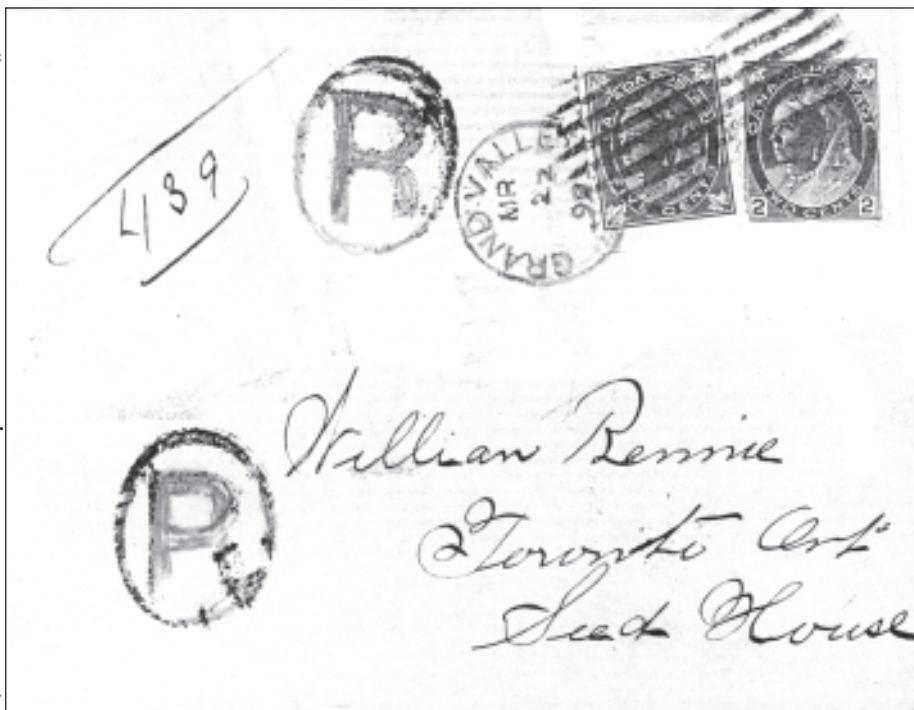 439
R
GRAND-VALLEY
MR
22
CANADA POSTAGE
TWO CENTS
2 2
R
Willian Rennie
Toronto Ont
Seed House